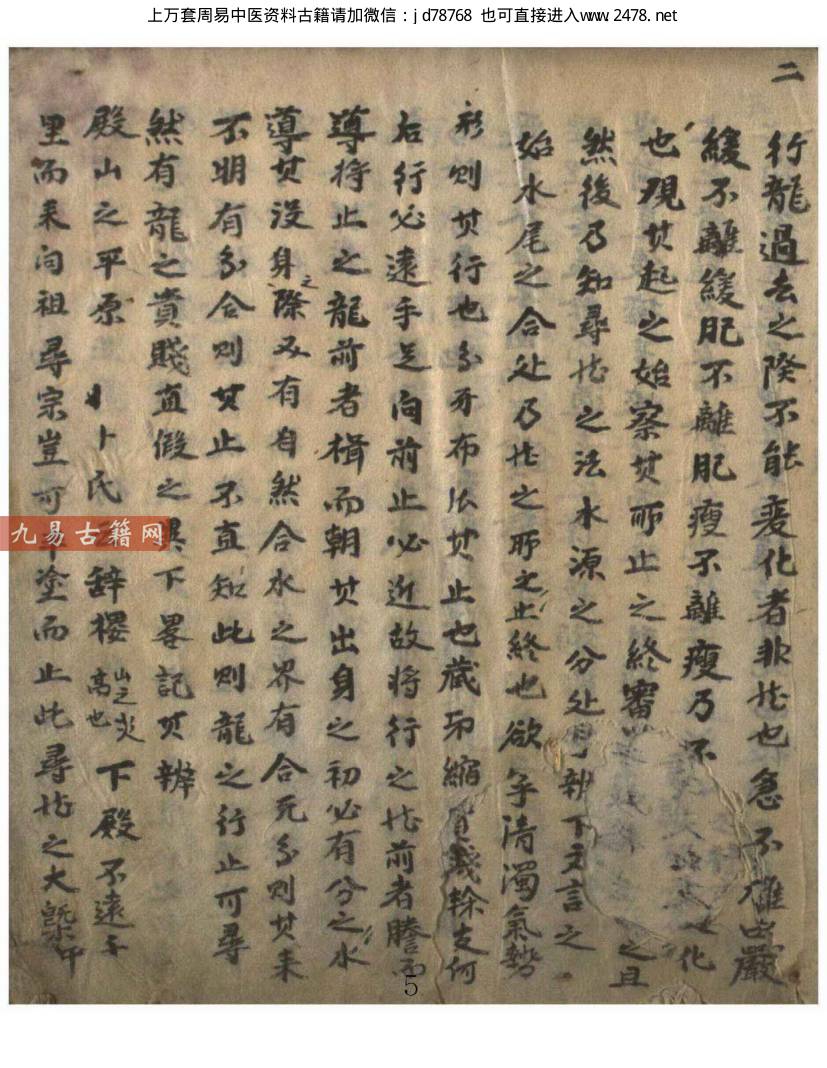 上万套周易中医资料古籍请加微信：jd78768 也可直接进入www.2478.net
二
行龍過去之際不能變化者非龙也急不離凶嚴
緩不離緩肥不離肥瘦不離瘦乃不化
也現其起之始察其所止之終審之且
然後乃知尋龙之法水源之分处辨下文言之
始水尾之合处乃龙之所之止終也欲争清濁氣勢
形則其行也分牙布爪其止也藏形縮幹支何
右行必遠手足向前止必近故将行之龙前者騰
導将止之龍前者楫而朝其出身之初必有分之水
導其没身之際又有自然合水之界有合无分則其来
不明有分合則其止不直知此則龍之行止可尋
然有龍之貴賤直假之下畧記其辨
殿山之平原 卜氏辞樓山之尖高也下殿不遠千
里而来向祖尋宗豈可塗而止此尋龙之大槩
九易古籍网
5